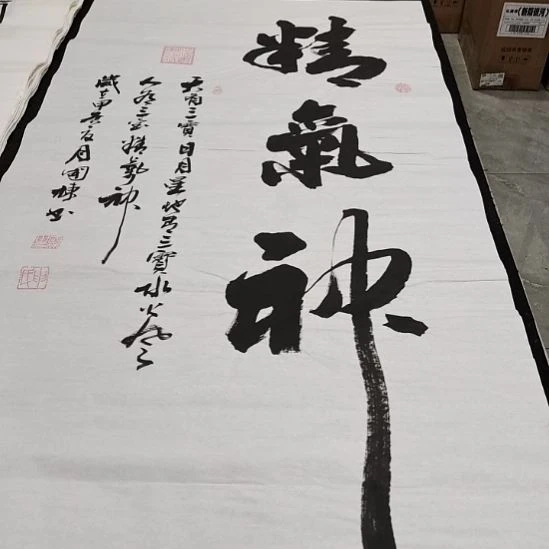 精氣神
天有三寳日月星地有三寳水火風
人有三寳精氣神
歲在甲辰夏月國棟书